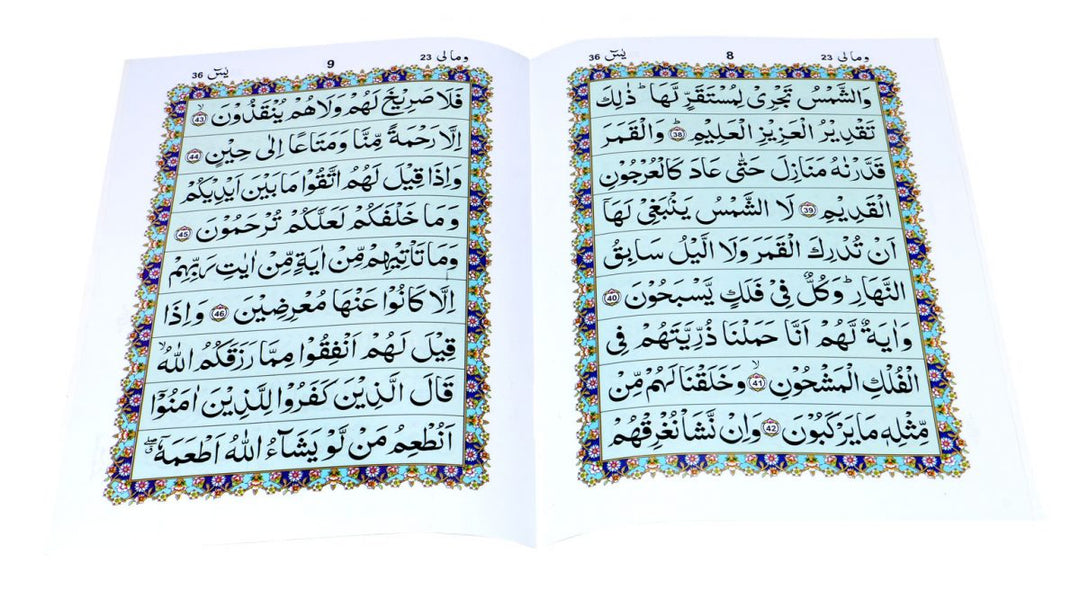 وما لی 23
8
یٰسٓ 36
وَالشَّمْسُ تَجْرِیْ لِمُسْتَقَرٍّ لَّهَا ؕ ذٰلِكَ
تَقْدِیْرُ الْعَزِیْزِ الْعَلِیْمِ ؕ 38 وَالْقَمَرَ
قَدَّرْنٰهُ مَنَازِلَ حَتّٰی عَادَ كَالْعُرْجُوْنِ
الْقَدِیْمِ 39 لَا الشَّمْسُ یَنْۢبَغِیْ لَهَاۤ
اَنْ تُدْرِكَ الْقَمَرَ وَلَا الَّیْلُ سَابِقُ
النَّهَارِ ؕ وَكُلٌّ فِیْ فَلَكٍ یَّسْبَحُوْنَ 40
وَاٰیَةٌ لَّهُمْ اَنَّا حَمَلْنَا ذُرِّیَّتَهُمْ فِی
الْفُلْكِ الْمَشْحُوْنِ ۙ 41 وَخَلَقْنَا لَهُمْ مِّنْ
مِّثْلِهٖ مَا یَرْكَبُوْنَ 42 وَاِنْ نَّشَاْ نُغْرِقْهُمْ
وما لی 23
9
یٰسٓ 36
فَلَا صَرِیْخَ لَهُمْ وَلَا هُمْ یُنْقَذُوْنَ ۙ 43
اِلَّا رَحْمَةً مِّنَّا وَمَتَاعًا اِلٰی حِیْنٍ 44
وَاِذَا قِیْلَ لَهُمُ اتَّقُوْا مَا بَیْنَ اَیْدِیْكُمْ
وَمَا خَلْفَكُمْ لَعَلَّكُمْ تُرْحَمُوْنَ 45
وَمَا تَاْتِیْهِمْ مِّنْ اٰیَةٍ مِّنْ اٰیٰتِ رَبِّهِمْ
اِلَّا كَانُوْا عَنْهَا مُعْرِضِیْنَ 46 وَاِذَا
قِیْلَ لَهُمْ اَنْفِقُوْا مِمَّا رَزَقَكُمُ اللّٰهُ ۙ
قَالَ الَّذِیْنَ كَفَرُوْا لِلَّذِیْنَ اٰمَنُوْۤا
اَنُطْعِمُ مَنْ لَّوْ یَشَآءُ اللّٰهُ اَطْعَمَهٗۤ